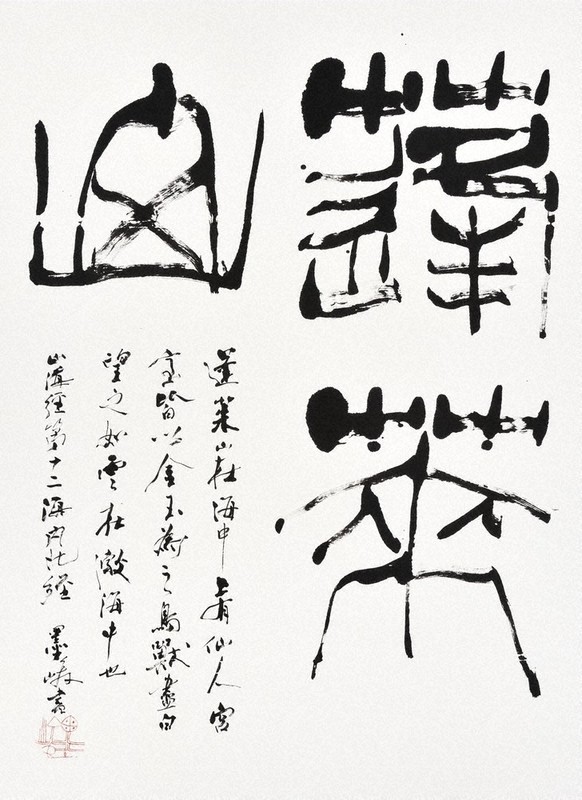 蓬莱
山
蓬莱山在海中上有仙人宮
室皆以金玉為之鳥獣盡白
望之如雲在渤海中也
山海経第十二海内北経 墨 書